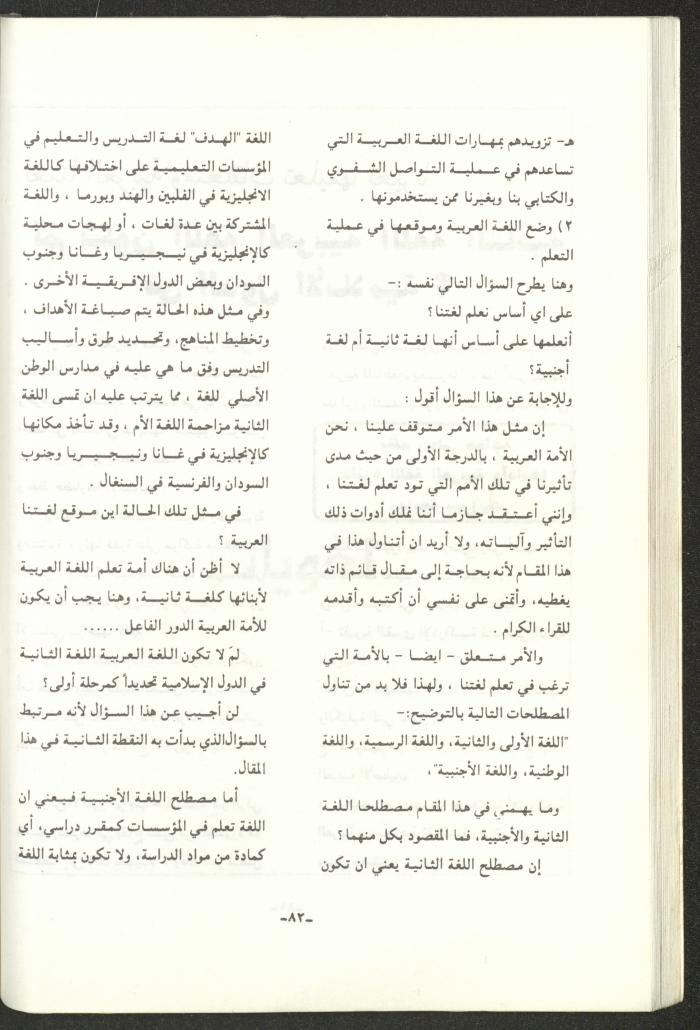 هـ- تزويدهم بمهارات اللغة العربية التي
تساعدهم في عملية التواصل الشفوي
والكتابي بنا وبغيرنا ممن يستخدمونها .
٢) وضع اللغة العربية وموقعها في عملية
التعلم .
وهنا يطرح السؤال التالي نفسه :-
على اي أساس نعلم لغتنا؟
أنعلمها على أساس أنها لغة ثانية أم لغة
أجنبية؟
وللإجابة عن هذا السؤال أقول :
إن مثل هذا الأمر متوقف علينا ، نحن
الأمة العربية ، بالدرجة الأولى من حيث مدى
تأثيرنا في تلك الأمم التي تود تعلم لغتنا ،
وإنني أعتقد جازما أننا نملك أدوات ذلك
التأثير وآلياته، ولا أريد ان أتناول هذا في
هذا المقام لأنه بحاجة إلى مقال قائم ذاته
يغطيه، وأتمنى على نفسي أن أكتبه وأقدمه
للقراء الكرام .
والأمر متعلق - ايضا - بالأمة التي
ترغب في تعلم لغتنا ، ولهذا فلا بد من تناول
المصطلحات التالية بالتوضيح:-
"اللغة الأولى والثانية، واللغة الرسمية، واللغة
الوطنية، واللغة الأجنبية"،
وما يهمني في هذا المقام مصطلحا اللغة
الثانية والأجنبية، فما المقصود بكل منهما؟
إن مصطلح اللغة الثانية يعني ان تكون
اللغة "الهدف" لغة التدريس والتعليم في
المؤسسات التعليمية على اختلافها كاللغة
الانجليزية في الفلبين والهند وبورما ، واللغة
المشتركة بين عدة لغات ، أو لهجات محلية
كالإنجليزية في نيجيريا وغانا وجنوب
السودان وبعض الدول الإفريقية الأخرى .
وفي مثل هذه الحالة يتم صياغة الأهداف ،
وتخطيط المناهج، وتحديد طرق وأساليب
التدريس وفق ما هي عليه في مدارس الوطن
الأصلي للغة ، مما يترتب عليه ان تمسى اللغة
الثانية مزاحمة اللغة الأم ، وقد تأخذ مكانها
كالإنجليزية في غانا ونيجيريا وجنوب
السودان والفرنسية في السنغال .
في مثل تلك الحالة اين موقع لغتنا
العربية ؟
لا أظن أن هناك أمة تعلم اللغة العربية
لأبنائها كلغة ثانية، وهنا يجب أن يكون
للأمة العربية الدور الفاعل ......
لمَ لا تكون اللغة العربية اللغة الثانية
في الدول الإسلامية تحديداً كمرحلة أولى؟
لن أجيب عن هذا السؤال لأنه مرتبط
بالسؤالالذي بدأت به النقطة الثانية في هذا
المقال.
أما مصطلح اللغة الأجنبية فيعني ان
اللغة تعلم في المؤسسات كمقرر دراسي، أي
كمادة من مواد الدراسة، ولا تكون بمثابة اللغة
-٨٢-